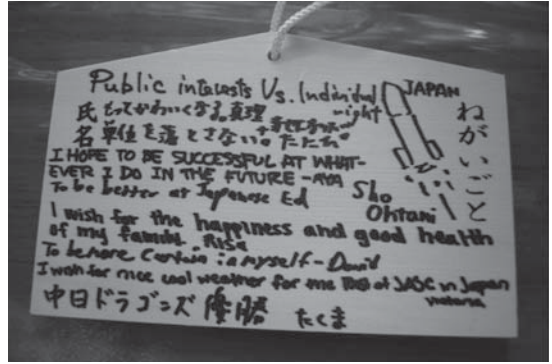 Public interests Vs. Individual right
JAPAN
ねがいごと
氏 もってかわいくなる。真理
名 単位を落とさない。
I HOPE TO BE SUCCESSFUL AT WHAT-
EVER I DO IN THE FUTURE -AYA
To be better at Japanese Ed
Sho
Ohtani
I wish for the happiness and good health
of my family. Risa
To be more certain in myself - David
I wish for nice cool weather for the of JASC in Japan
Victoria
中日ドラゴンズ 優勝 たくま